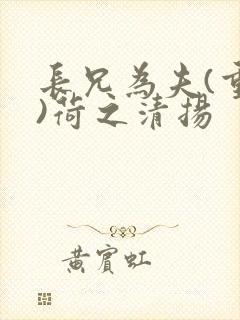 長兄為夫(重
)荷之清揚
黃賓虹